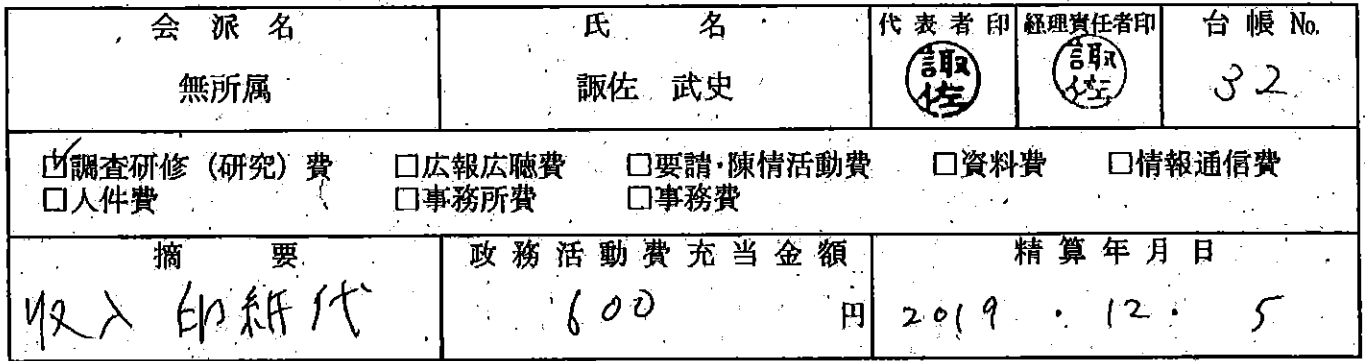 会派名 氏名 代表者印 経理責任者印 台帳No.
無所属 諏佐 武史 諏佐 諏佐 32
☑調査研修（研究）費 □広報広聴費 □要請・陳情活動費 □資料費 □情報通信費
□人件費 □事務所費 □事務費
摘要 政務活動費充当金額 精算年月日
収入印紙代 600 円 2019 . 12 . 5